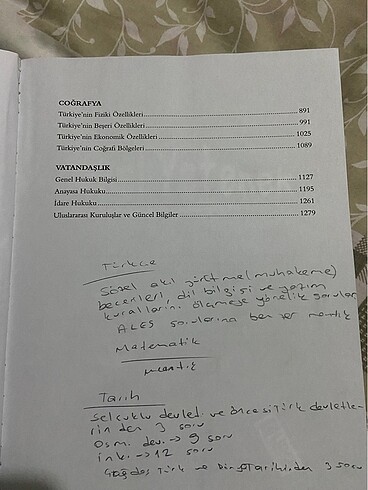 COĞRAFYA
Türkiye'nin Fiziki Özellikleri 891
Türkiye'nin Beşeri Özellikleri 991
Türkiye'nin Ekonomik Özellikleri 1025
Türkiye'nin Coğrafi Bölgeleri 1089
VATANDAŞLIK
Genel Hukuk Bilgisi 1127
Anayasa Hukuku 1195
İdare Hukuku 1261
Uluslararası Kuruluşlar ve Güncel Bilgiler 1279
Türkçe
Sözel akıl yürütme (muhakeme)
becerileri, dil bilgisi ve yazım
kurallarını ölçmeye yönelik sorular
ALES sorularına benzer mantık
Matematik
mantık
Tarih
Selçuklu devleti ve öncesi Türk devletle-
rinden 3 soru
Osm. dev. → 9 soru
ink. → 12 soru
Çağdaş Türk ve Dünya Tarihinden 3 soru